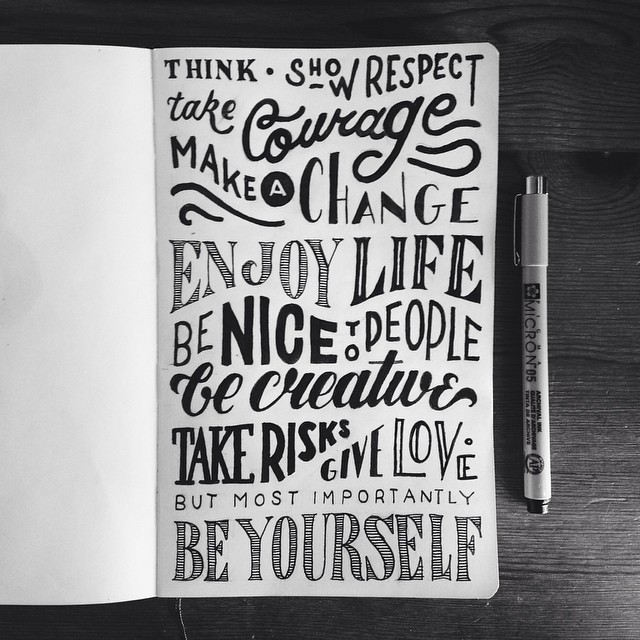 THINK • SHOW RESPECT
take Courage
MAKE A CHANGE
ENJOY LIFE
BE NICE TO PEOPLE
be creative
TAKE RISKS GIVE LOVE
BUT MOST IMPORTANTLY
BE YOURSELF
MICRON 05
ARCHIVAL INK